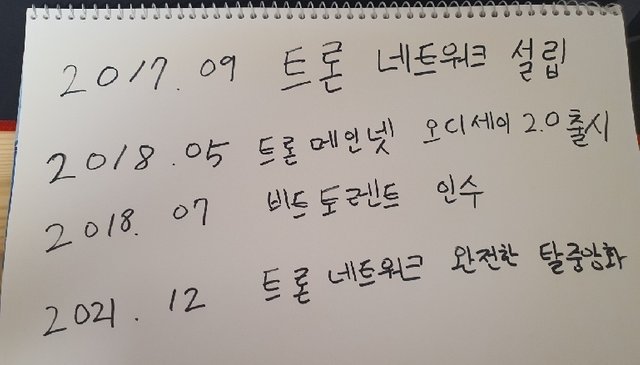 2017. 09 트론 네트워크 설립
2018. 05 트론메인넷 오디세이 2.0 출시
2018. 07 비트토렌트 인수
2021. 12 트론 네트워크 완전한 탈중앙화